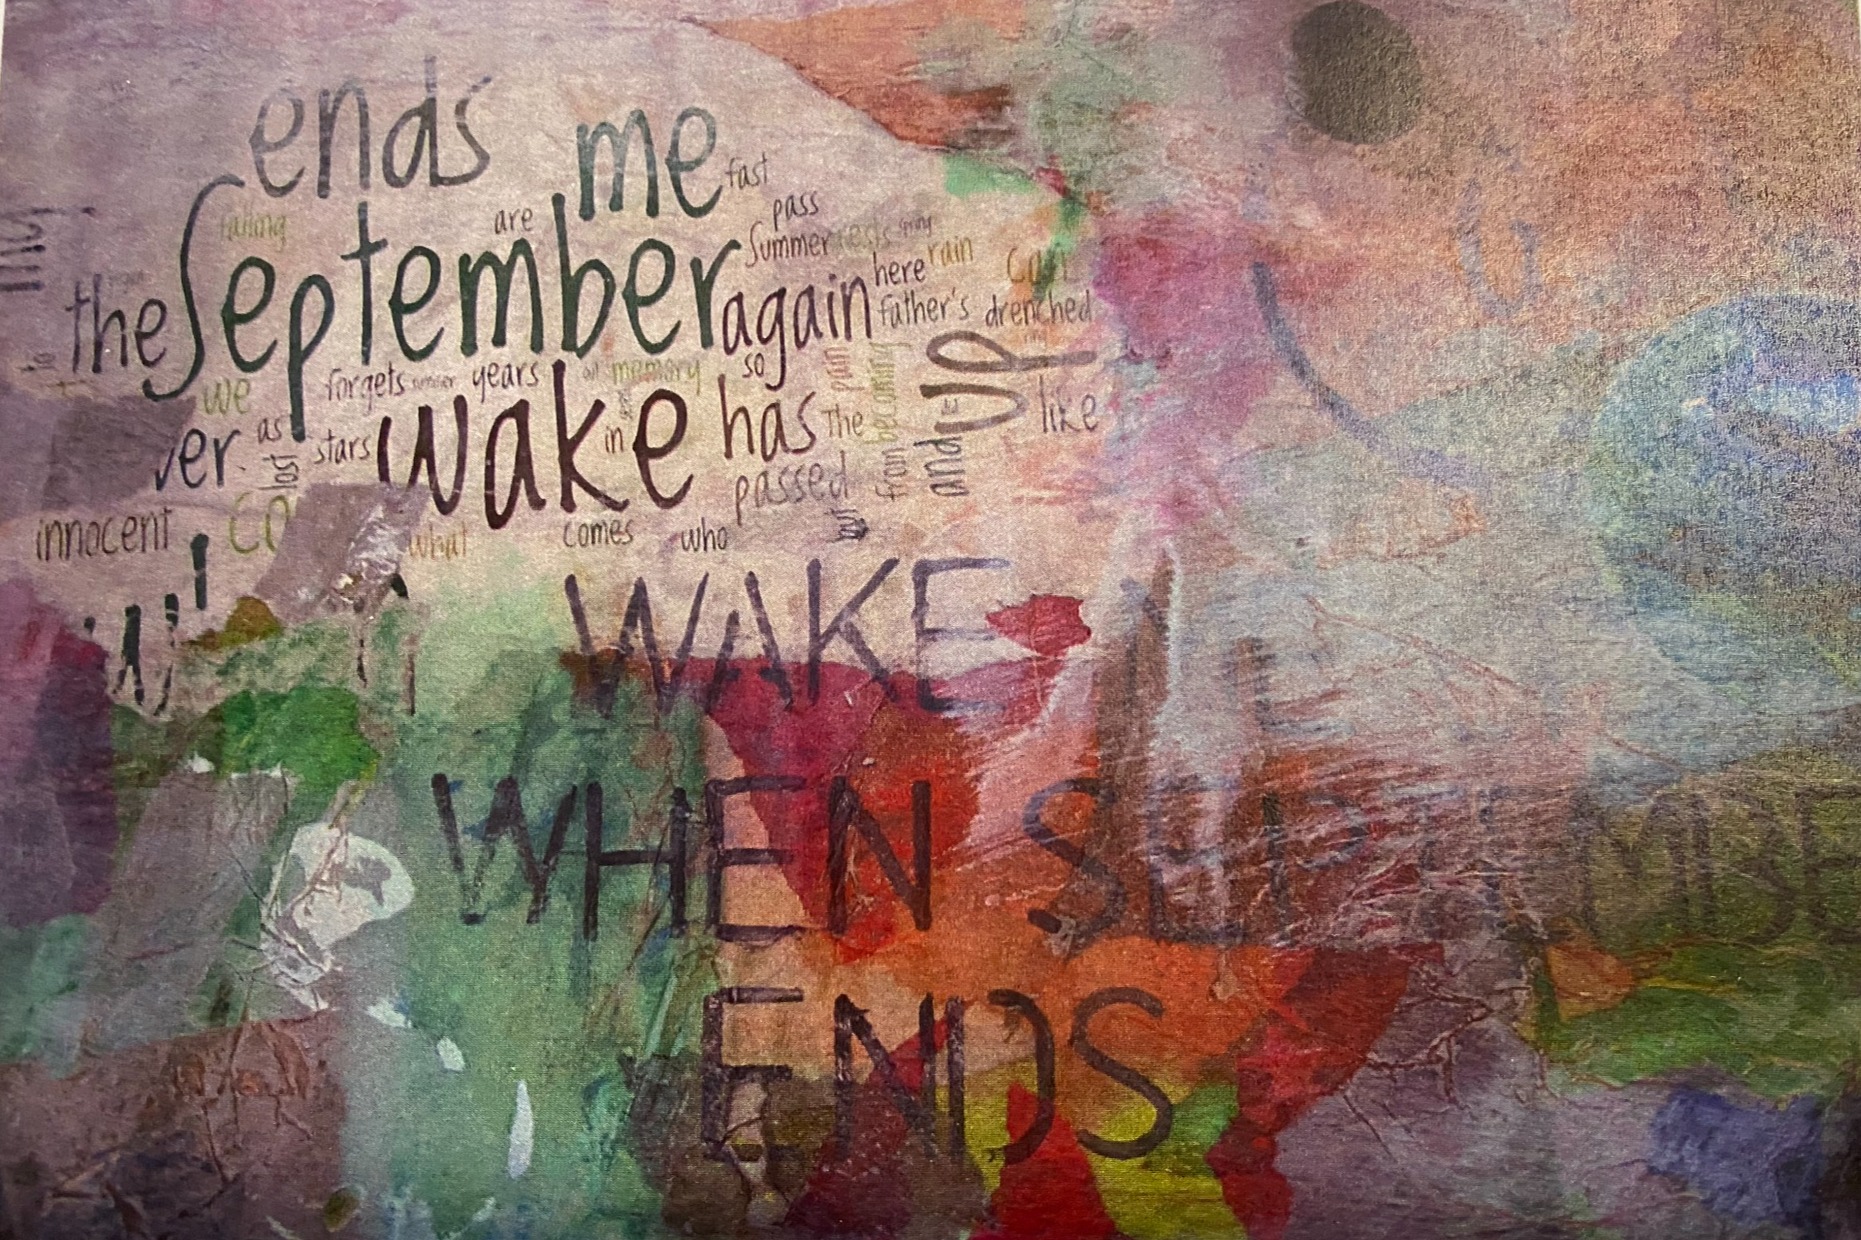 ends me fast
falling are pass
Summer
the September again here rain
father's drenched
we forgets years memory so pain becoming up
ver as stars wake in has The and like
lost passed from
innocent what comes who but
WAKE
WHEN SEPTEMBE
ENDS